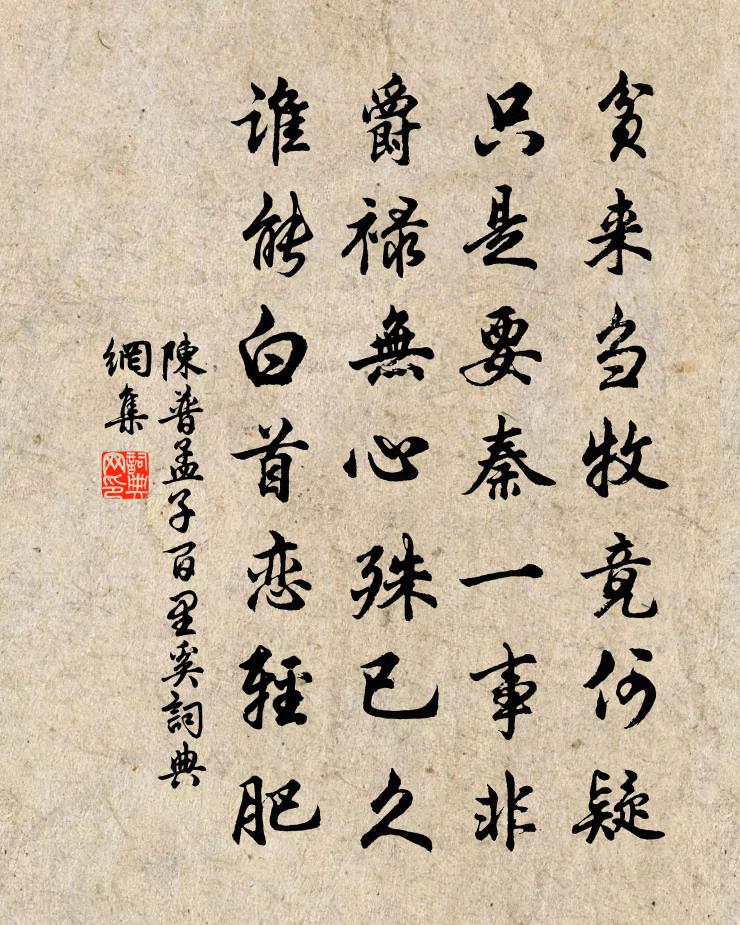 貧来当牧竟何疑
只是要秦一事非
爵禄無心殊已久
誰能白首恋輕肥
陳普孟子百里奚詞典
網集
詞典
网印